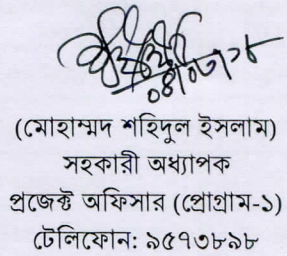 ০৪/০৩/১৮
(মোহাম্মদ শহিদুল ইসলাম)
সহকারী অধ্যাপক
প্রজেক্ট অফিসার (প্রোগ্রাম-১)
টেলিফোন: ৯৫৭৩৮৯৮